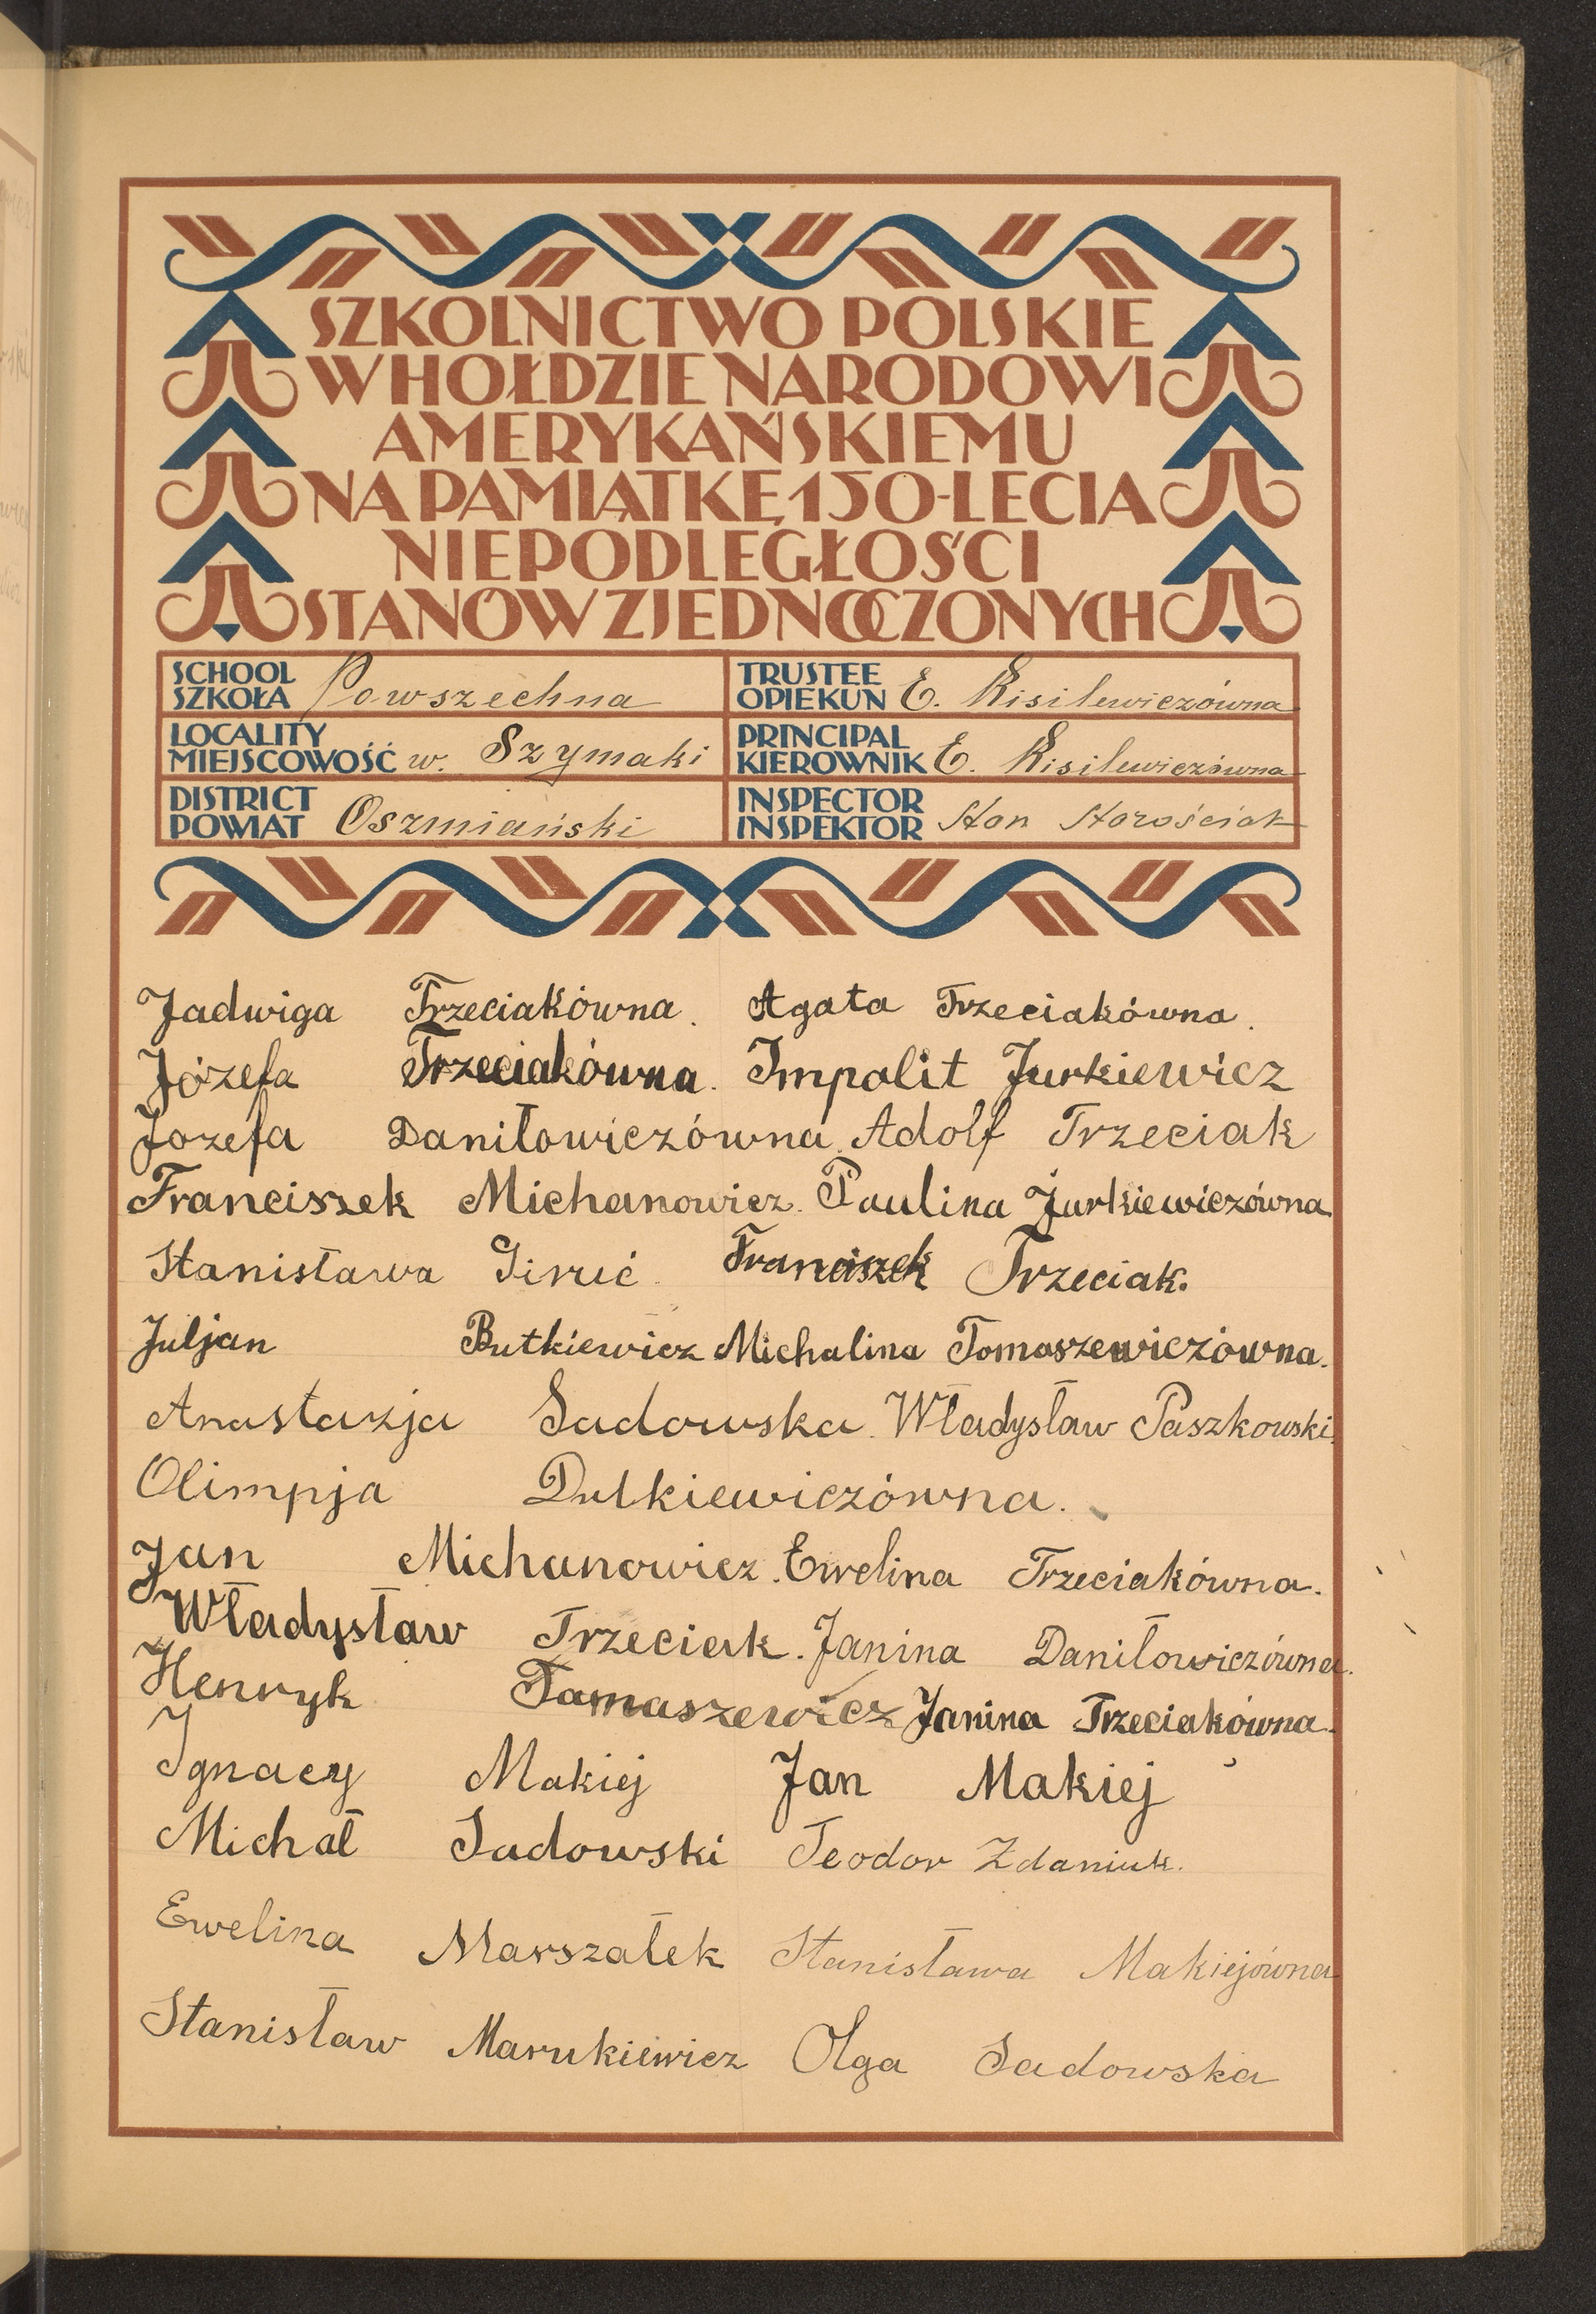 SZKOLNICTWO POLSKIE
W HOŁDZIE NARODOWI
AMERYKAŃSKIEMU
NA PAMIĄTKĘ 150-LECIA
NIEPODLEGŁOŚCI
STANÓW ZJEDNOCZONYCH
SCHOOL
SZKOŁA Powszechna
TRUSTEE
OPIEKUN E. Kisilewiczówna
LOCALITY
MIEJSCOWOŚĆ w. Szymaki
PRINCIPAL
KIEROWNIK E. Kisilewiczówna
DISTRICT
POWIAT Oszmiański
INSPECTOR
INSPEKTOR Stan Starościak
Jadwiga Trzeciakówna. Agata Trzeciakówna.
Józefa Trzeciakówna. Impolit Jurkiewicz
Jozefa Daniłowiczówna. Adolf Trzeciak
Franciszek Michanowicz. Paulina Jurkiewiczówna
Stanisława Giruć. Franciszek Trzeciak.
Juljan Butkiewicz Michalina Tomaszewiczówna.
Anastazja Sadowska. Władysław Paszkowski.
Olimpja Dutkiewiczówna.
Jan Michanowicz. Ewelina Trzeciakówna.
Władysław Trzeciak. Janina Daniłowiczówna.
Henryk Tamaszewicz Janina Trzeciakówna.
Ignacy Makiej Jan Makiej
Michał Sadowski Teodor Zdaniuk.
Ewelina Marszałek Stanisława Makiejówna
Stanisław Marukiewicz Olga Sadowska